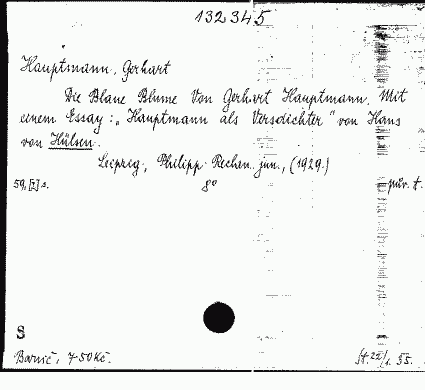 132345
Hauptmann, Gerhart
Die Blaue Blume Von Gerhart Hauptmann. Mit
einem Essay: „Hauptmann als Versdichter" von Hans
von Hülsen.
Leipzig, Philipp Reclam jun., (1929.)
59, [2] s. 8° pův. t.
S
Barvič, 7·50 Kč.